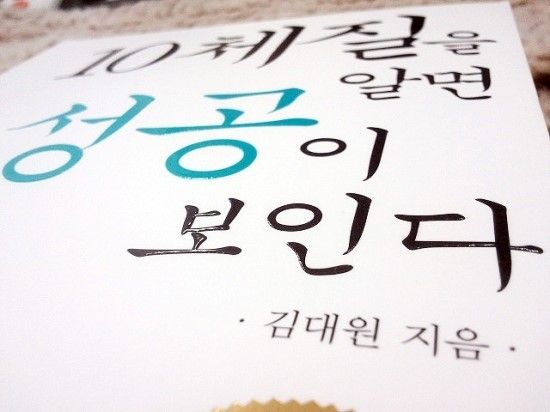 10체질을
알면
성공이
보인다
· 김대원 지음 ·